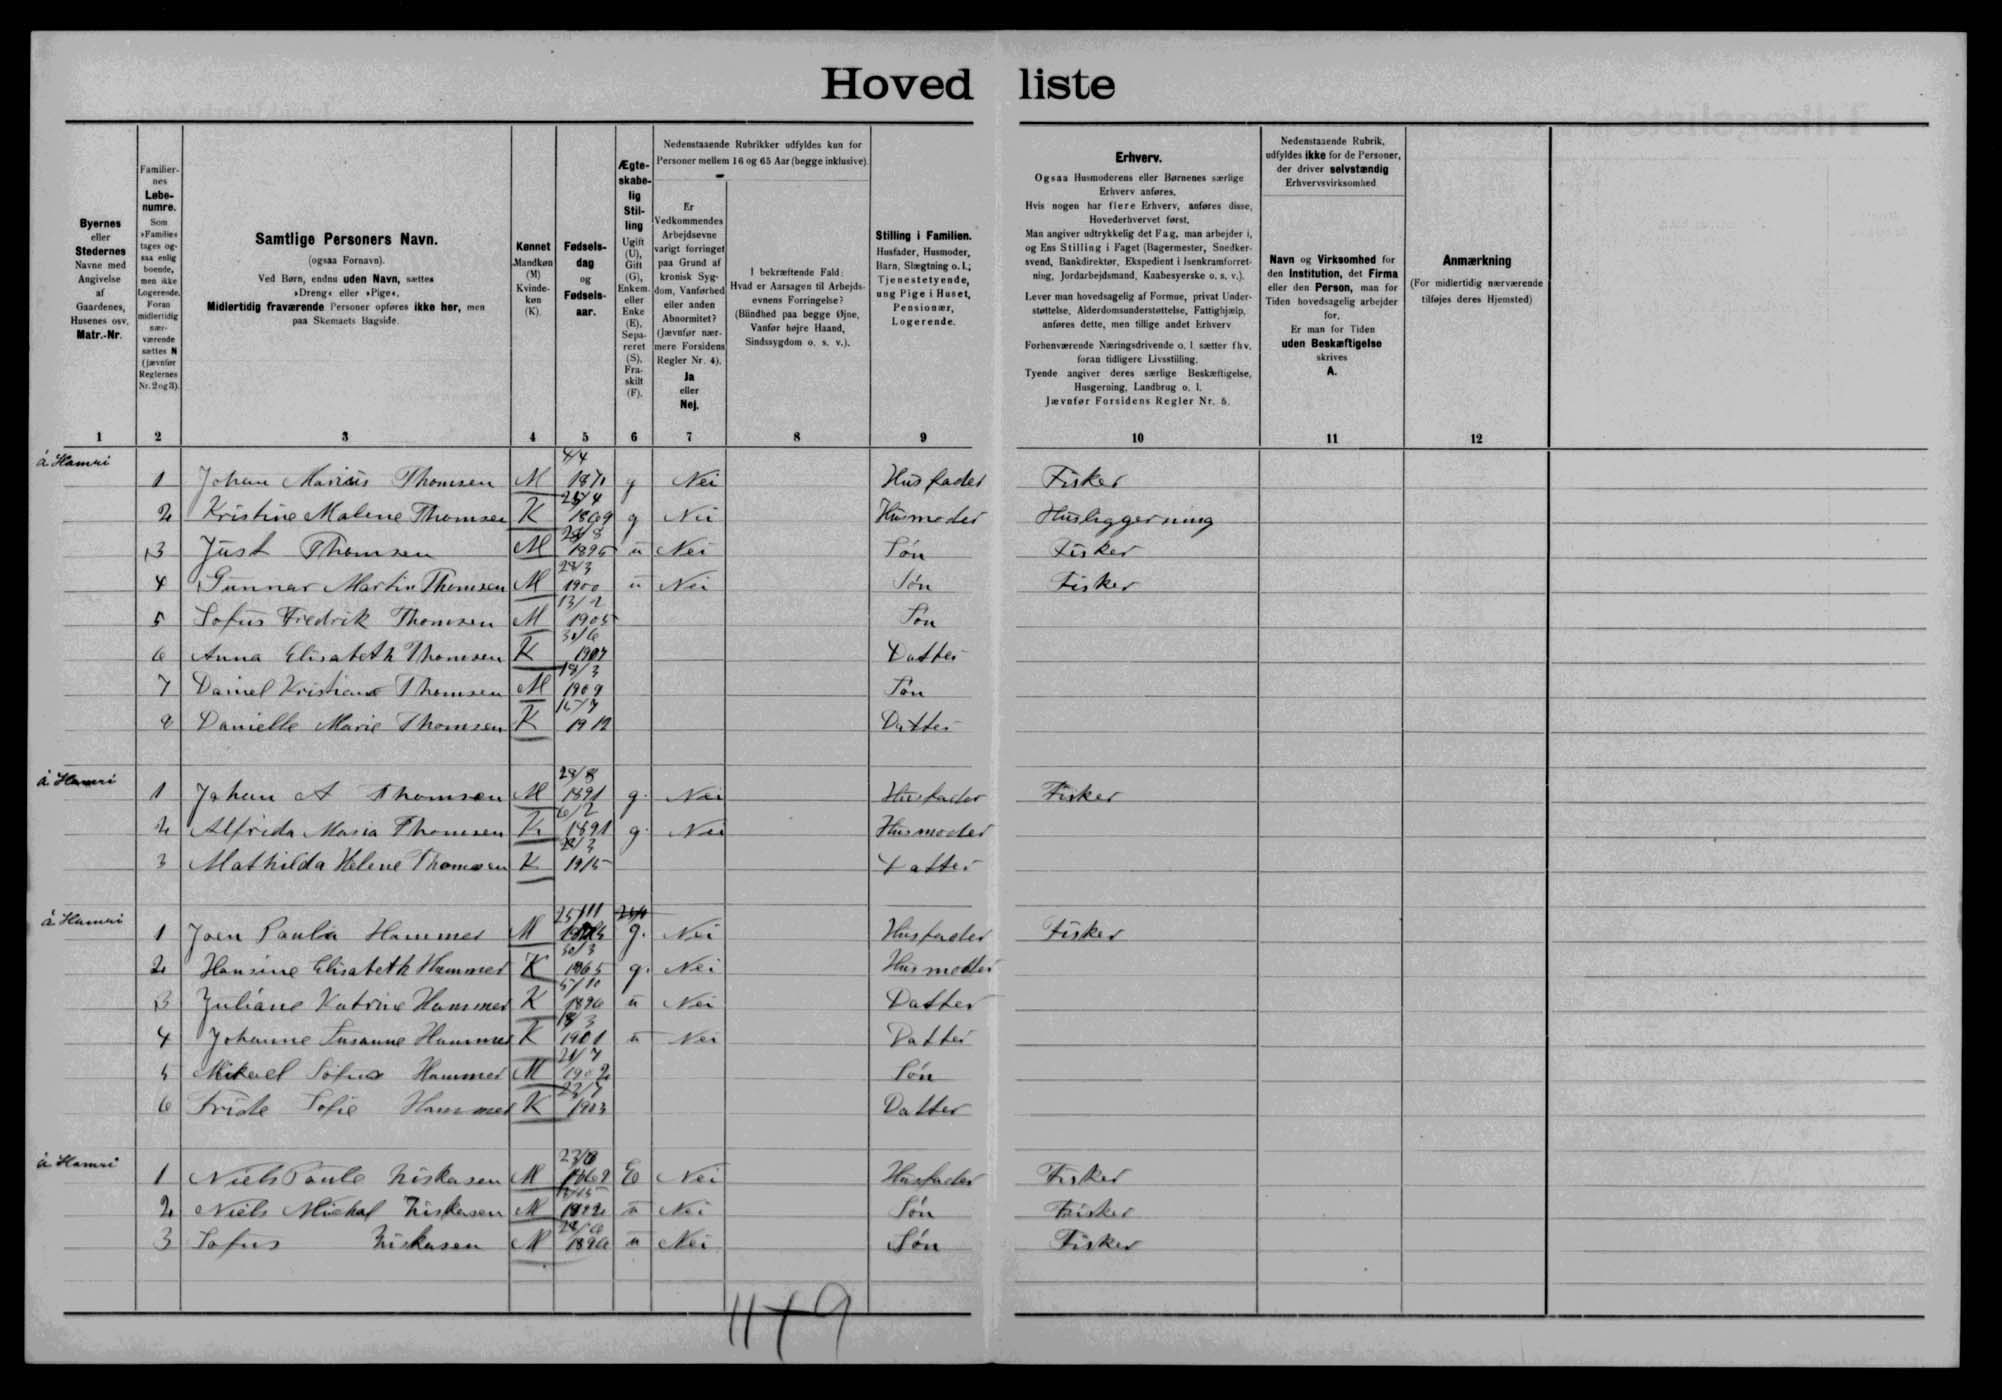 Hovedliste
Byernes
eller
Stedernes
Navne med
Angivelse
af
Gaardenes,
Husenes osv.
Matr.-Nr.
Familier-
nes
Løbe-
numre.
Som
»Familie«
tages og-
saa enlig
boende,
men ikke
Logerende.
Foran
midlertidig
nær-
værende
sættes N
(jævnfør
Reglernes
Nr. 2 og 3).
Samtlige Personers Navn.
(ogsaa Fornavn).
Ved Børn, endnu uden Navn, sættes
»Dreng« eller »Pige«.
Midlertidig fraværende Personer opføres ikke her, men
paa Skemaets Bagside.
Kønnet
Mandkøn
(M)
Kvinde-
køn
(K).
Fødsels-
dag
og
Fødsels-
aar.
Ægte-
skabe-
lig
Stil-
ling
Ugift
(U),
Gift
(G),
Enkem.
eller
Enke
(E),
Sepa-
reret
(S),
Fra-
skilt
(F).
Nedenstaaende Rubrikker udfyldes kun for
Personer mellem 16 og 65 Aar (begge inklusive).
Er
Vedkommendes
Arbejdsevne
varigt forringet
paa Grund af
kronisk Syg-
dom, Vanførhed
eller anden
Abnormitet?
(Jævnfør nær-
mere Forsidens
Regler Nr. 4).
Ja
eller
Nej.
I bekræftende Fald:
Hvad er Aarsagen til Arbejds-
evnens Forringelse?
(Blindhed paa begge Øjne,
Vanfør højre Haand,
Sindssygdom o. s. v.).
Stilling i Familien.
Husfader, Husmoder,
Barn, Slægtning o. l.;
Tjenestetyende,
ung Pige i Huset,
Pensionær,
Logerende.
Erhverv.
Ogsaa Husmoderens eller Børnenes særlige
Erhverv anføres.
Hvis nogen har flere Erhverv, anføres disse,
Hovederhvervet først.
Man angiver udtrykkelig det Fag, man arbejder i,
og Ens Stilling i Faget (Bagermester, Snedker-
svend, Bankdirektør, Ekspedient i Isenkramforret-
ning, Jordarbejdsmand, Kaabesyerske o. s. v.).
Lever man hovedsagelig af Formue, privat Under-
støttelse, Alderdomsunderstøttelse, Fattighjælp,
anføres dette, men tillige andet Erhverv
Forhenværende Næringsdrivende o. l. sætter fhv.
foran tidligere Livsstilling.
Tyende angiver deres særlige Beskæftigelse,
Husgerning, Landbrug o. l.
Jævnfør Forsidens Regler Nr. 5.
Nedenstaaende Rubrik,
udfyldes ikke for de Personer,
der driver selvstændig
Erhvervsvirksomhed
Navn og Virksomhed for
den Institution, det Firma
eller den Person, man for
Tiden hovedsagelig arbejder
for.
Er man for Tiden
uden Beskæftigelse
skrives
A.
Anmærkning
(For midlertidig nærværende
tilføjes deres Hjemsted)
1 2 3 4 5 6 7 8 9 10 11 12
á Hamri
1 Johan Marius Thomsen M 4/4 1870 g Nei Husfader Fisker
2 Kristine Malene Thomsen K 1869 g Nei Husmoder Husliggerning
3 Just Thomsen M 1895 u Nei Søn Fisker
4 Gunnar Martin Thomsen M 28/3 1900 u Nei Søn Fisker
5 Sofus Fredrik Thomsen M 13/2 1905 Søn
6 Anna Elisabeth Thomsen K 1907 Datter
7 Daniel Kristian Thomsen M 18/3 1909 Søn
8 Danielle Marie Thomsen K 16/7 1912 Datter
á Hamri
1 Johan A Thomsen M 28/8 1891 g. Nei Husfader Fisker
2 Alfrida Maria Thomsen K 6/2 1891 g. Nei Husmoder
3 Mathilda Helene Thomsen K 1915 Datter
á Hamri
1 Joen Paula Hammer M 25/11 g. Nei Husfader Fisker
2 Hansine Elisabeth Hammer K 30/3 1865 g. Nei Husmoder
3 Juliane Katrine Hammer K 5/10 1896 u Nei Datter
4 Johanne Susanne Hammer K 1901 u Nei Datter
5 Mikael Sofus Hammer M 21/7 1902 Søn
6 Fride Sofie Hammer K 22/7 1903 Datter
á Hamri
1 Niels Paule Ziskasen M E Nei Husfader Fisker
2 Niels Michal Ziskasen M 1892 u Nei Søn Fisker
3 Sofus Ziskasen M 1896 u Nei Søn Fisker
11+9